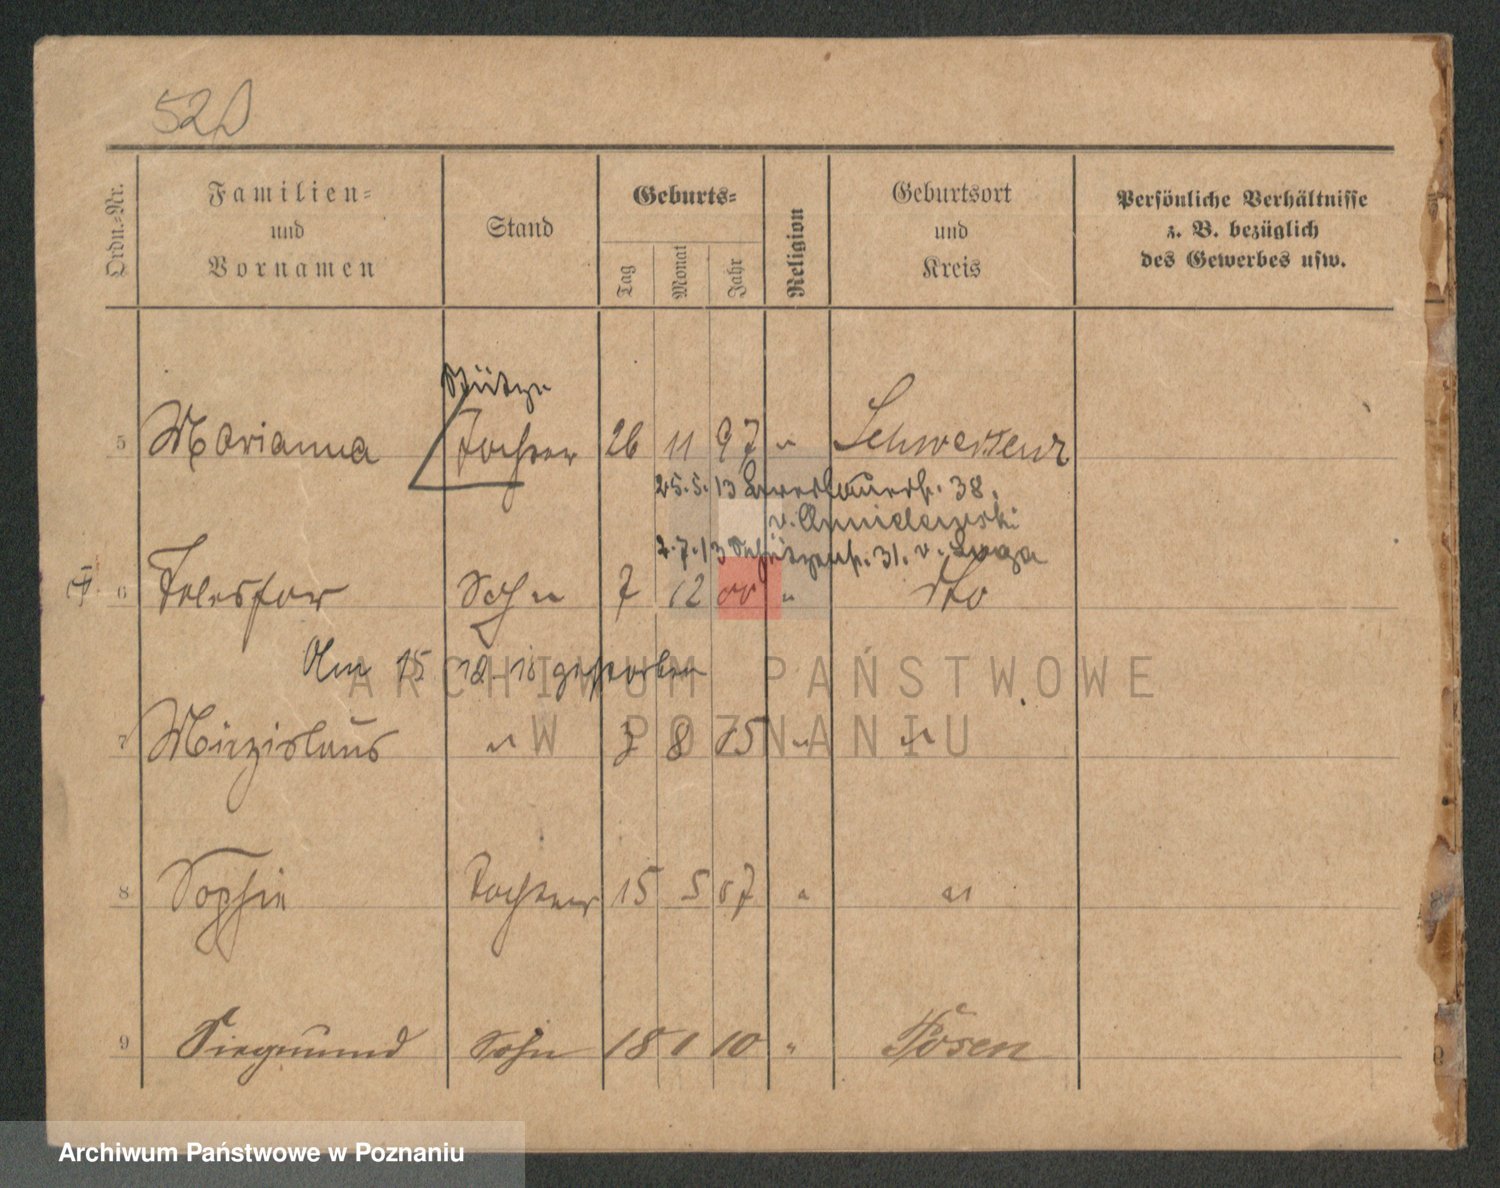 52
Ordn.-Nr.
Familien-
und
Vornamen
Stand
Geburts-
Tag
Monat
Jahr
Religion
Geburtsort
und
Kreis
Persönliche Verhältnisse
z. B. bezüglich
des Gewerbes usw.
Stütze
5 Marianna Tochter 26 11 97 " Schwersenz
25.5.13 38.
v.
2.7.13 Schützenstr. 31. v. Luga
6 Telesfor Sohn 7 12 00 " dto
Am 15 12 18 gestorben
7 Miezislaus " 3 8 05 " "
8 Sophie Tochter 15 5 07 " "
9 Siegmund Sohn 18 1 10 " Posen
ARCHIWUM PAŃSTWOWE
W POZNANIU
Archiwum Państwowe w Poznaniu